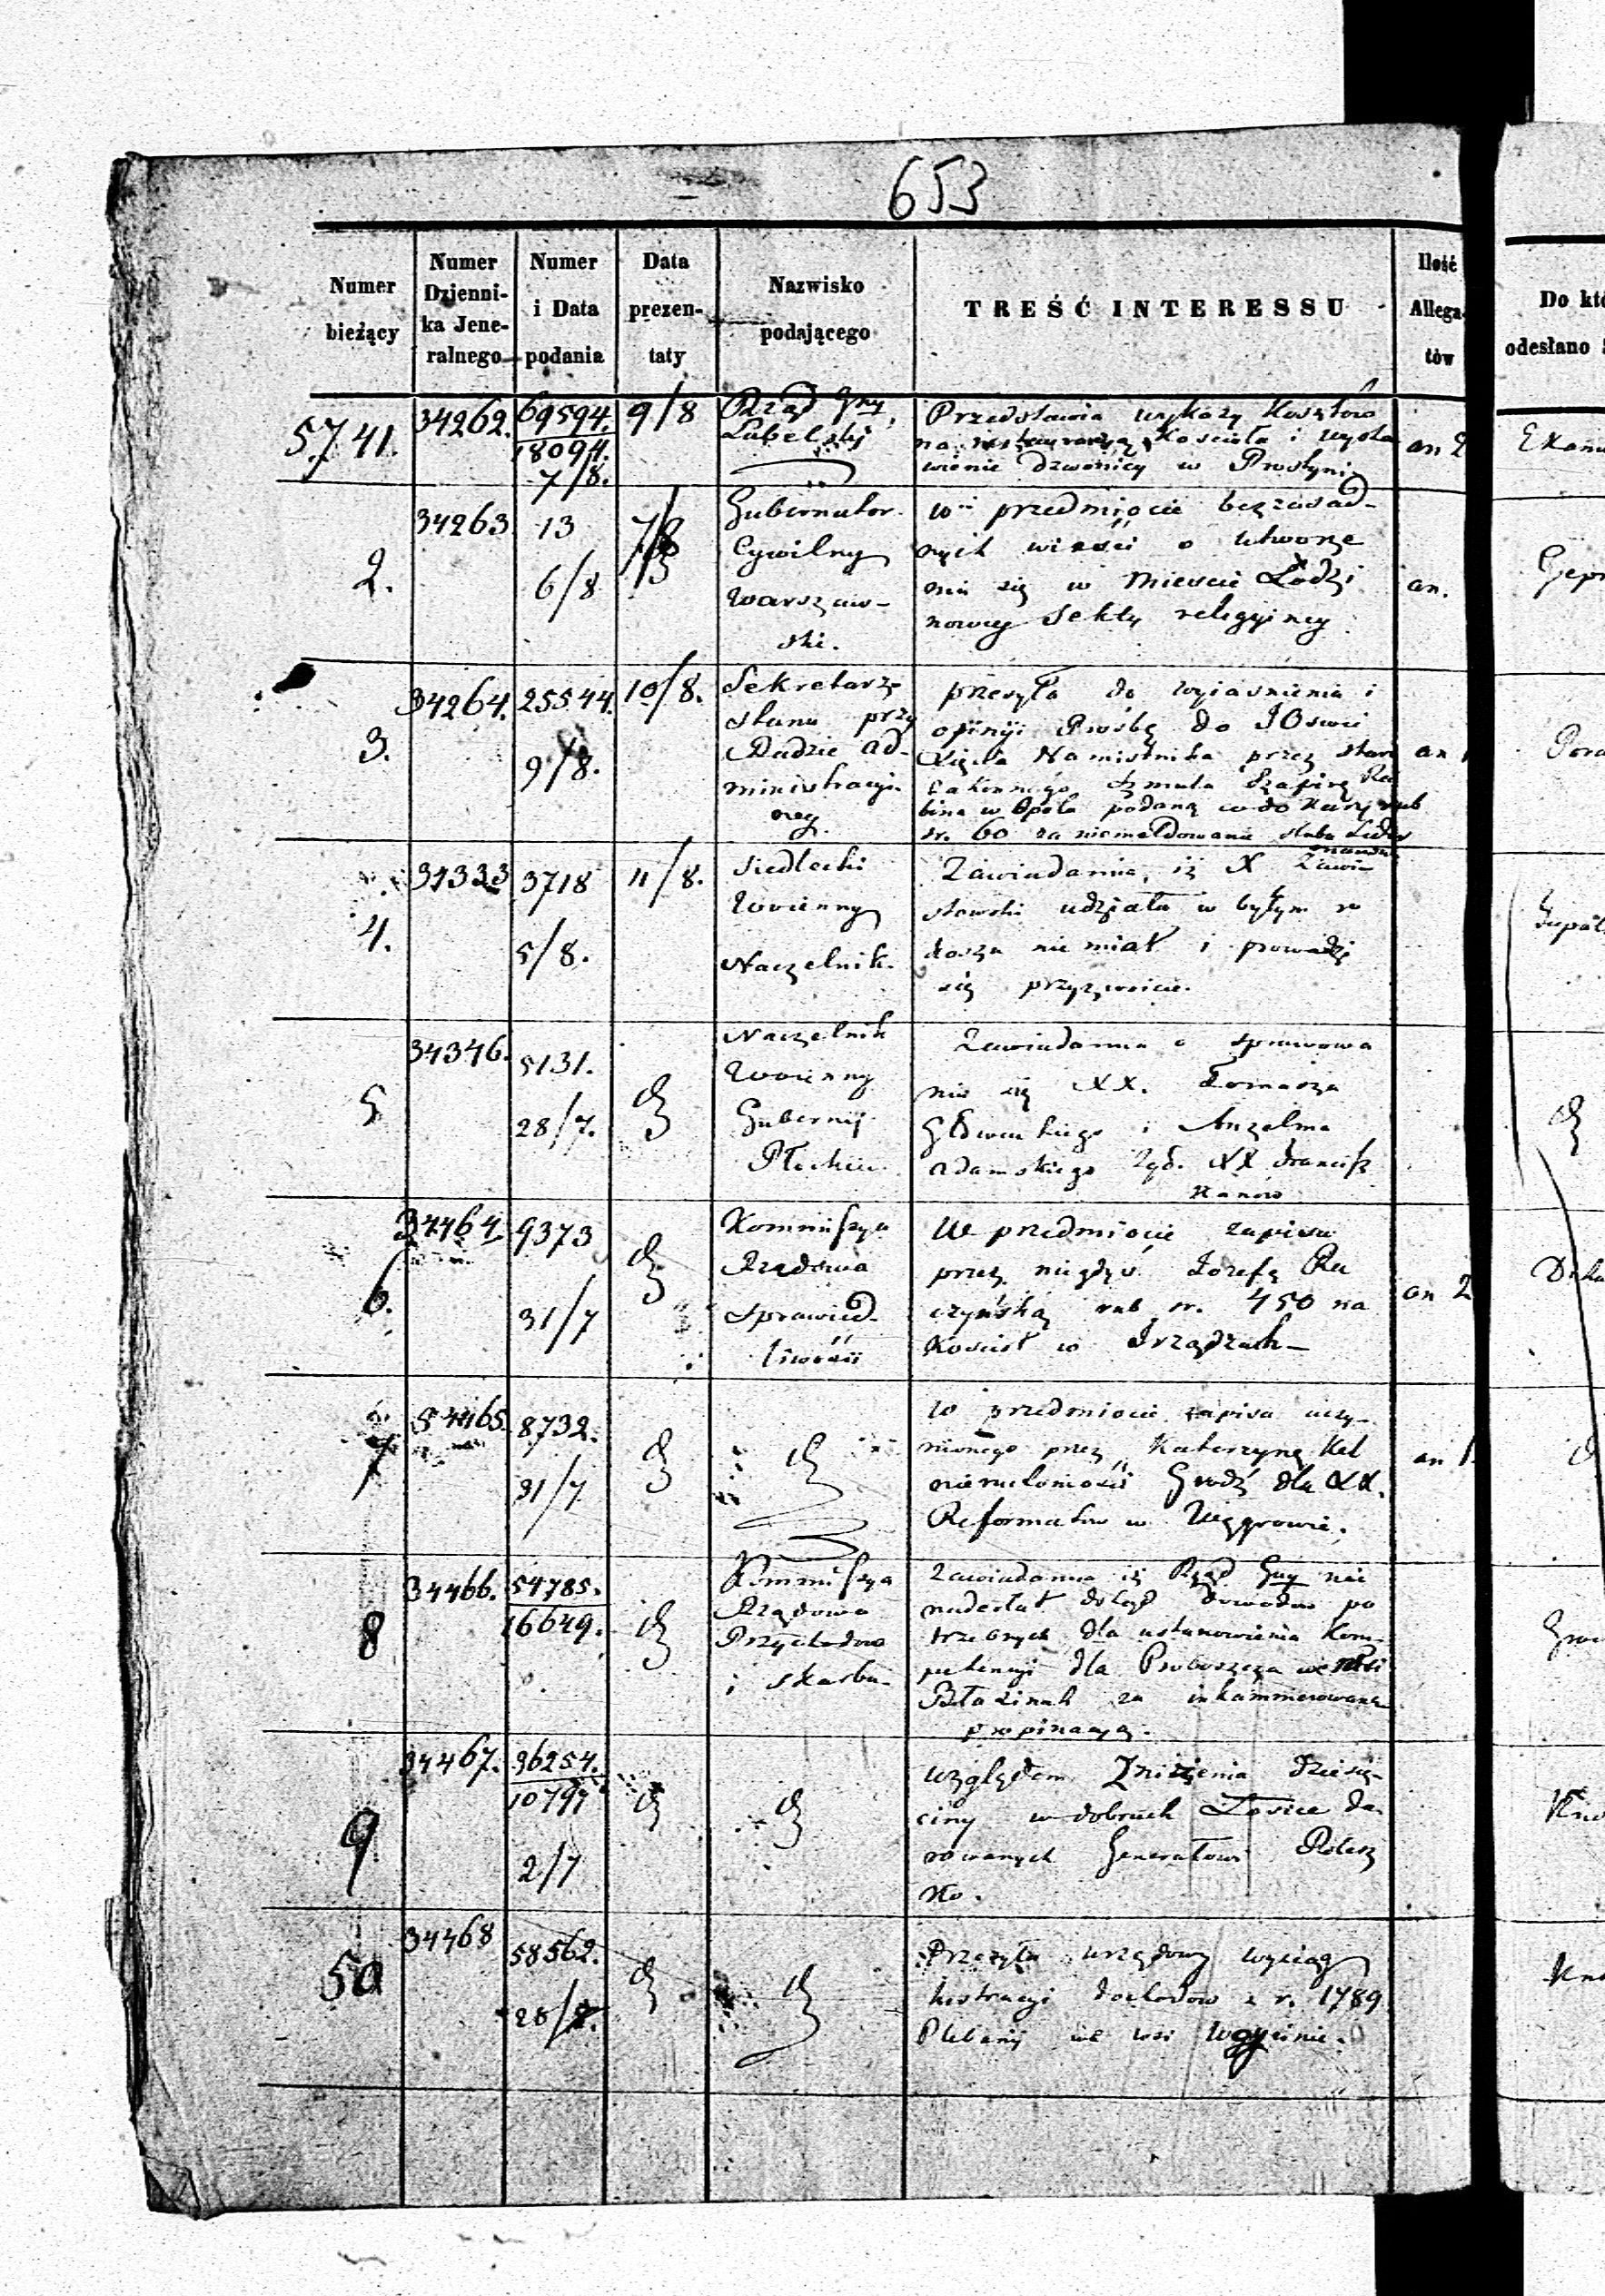 653
Numer bieżący
Numer Dzienni-ka Jene-ralnego
Numer i Data podania
Data prezen-taty
Nazwisko podającego
TREŚĆ INTERESSU
Ilość Allega-tów
Do któ
odesłano
5741. 34262. 69594. 18094. 7/8. 9/8
Rząd Gny
Lubelski
Przedstawia wykazy Kosztów
na restauracyą Kościoła i wysta
wienie dzwonicy w Prostyni
an 2
2. 34263 13 6/8 7/8
Gubernator
Cywilny
Warszaw-
ski.
w przedmiocie bezzasad-
nych wieści o utworze
nia się w mieście Łodzi
nowey Sekty religyiney
an.
3. 34264. 25544. 9/8. 10/8.
Sekretarz
Stanu przy
Radzie Ad-
ministracyi-
ney.
przesyła do wyiasnienia i
opinyi Prośbę do JOswie
Xięcia Namiestnika przez staro
zakonnego Szmula Szapirę Ra
bina w Opolu podaną co do kary rub
sr. 60 za niemeldowanie ślubu
an 1
4. 34333 3718 5/8. 11/8.
Siedlecki
Woienny
Naczelnik.
Zawiadamia, iż X Zawi-
stowski udziału w byłym ro
koszu nie miał i prowadzi
się przyzwoicie.
5 34346. 5131. 28/7.
Naczelnik
Woienny
Gubernij
Płockiey
Zawiadamia o sprawowa
niu się XX. Tomasza
Główackiego i Anzelma
Adamskiego Zgd. XX Francisz
kanów
6. 34464 9373 31/7
Kommissya
Rządowa
Sprawied-
liwości
W przedmiocie zapisu
przez niegdyś Józefę Ra
czyńską rub sr. 450 na
Kościoł w Irządzach
an 2
7 34465. 8732. 31/7
W przedmiocie zapisu uczy-
nionego przez Katarzynę Kel
nieruchomości Grodź dla XX.
Reformatów w Węgrowie.
an 1.
8 34466. 54785. 16649.
Kommissya
Rządowa
Przychodów
i Skarbu
Zawiadamia iż Rząd Gny nie
nadesłał dotąd dowodów po
trzebnych dla ustanowienia Kom-
petencyi dla Proboszcza we Wsi
Błazinach za inkammerowaną
propinacyą.
9 34467. 36254. 10797 2/7
względem Zniżenia dziesię-
ciny w dobrach Łosice da-
rowanych Generałowi
ko.
50 34468 58562. 28/7.
Przesyła urzędowy wyciąg
lustracyi dochodów z r. 1789
Plebanij we wsi